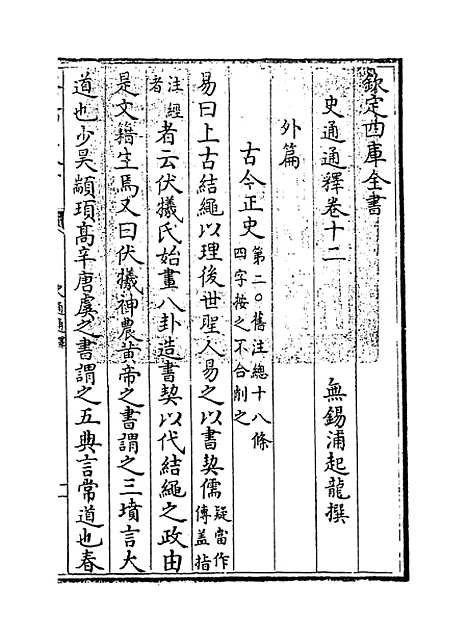 欽定四庫全書
史通通釋卷十二
無錫浦起龍撰
外篇
古今正史第二○舊注總十八條四字按之不合削之
易曰上古結繩以理後世聖人易之以書契儒疑當作傳蓋指
注經者者云伏犧氏始畫八卦造書契以代結繩之政由
是文籍生焉又曰伏犧神農黄帝之書謂之三墳言大
道也少昊顓頊髙辛唐虞之書謂之五典言常道也春
史通通釋